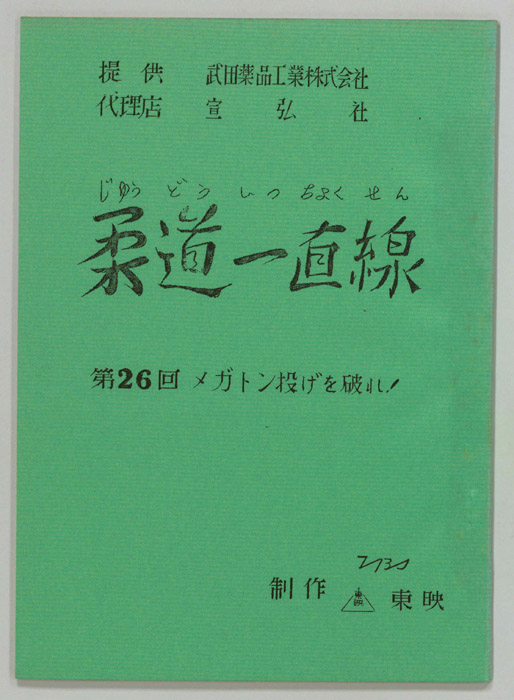 提供 武田薬品工業株式会社
代理店 宣弘社
じゅうどういっちょくせん
柔道一直線
第26回 メガトン投げを破れ!
TBS
制作 東映 東映